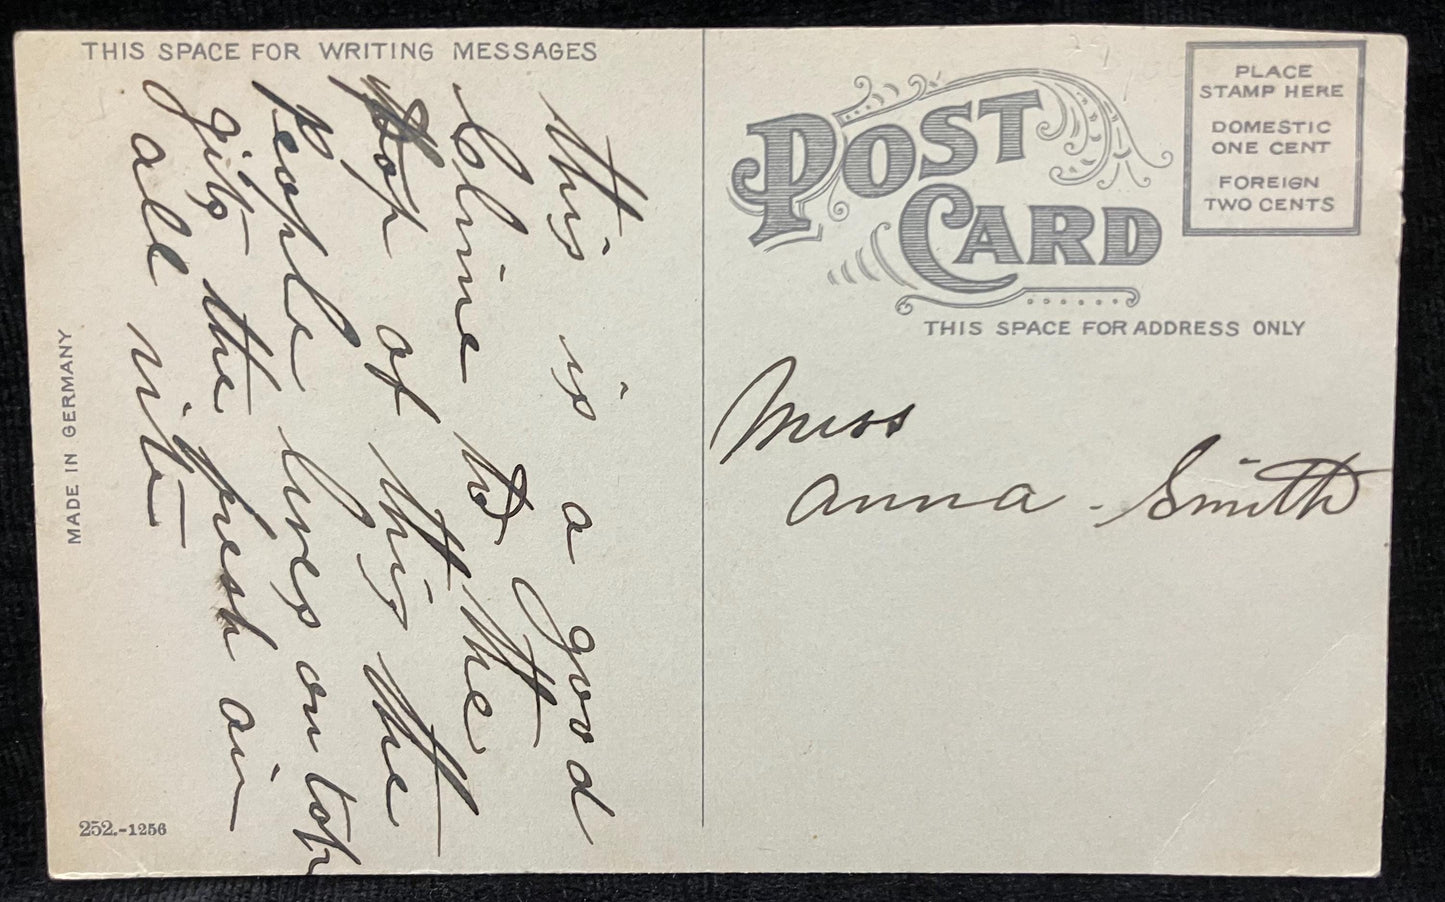 THIS SPACE FOR WRITING MESSAGES
this is a good
Clime to the
top of this the
People lives on top
gits the fresh air
all nite
MADE IN GERMANY
252.-1256
POST
CARD
PLACE
STAMP HERE
DOMESTIC
ONE CENT
FOREIGN
TWO CENTS
THIS SPACE FOR ADDRESS ONLY
Miss
Anna - Smith